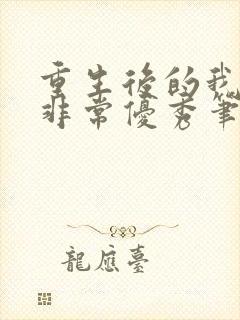 重生後的我
非常優秀筆
龍應臺